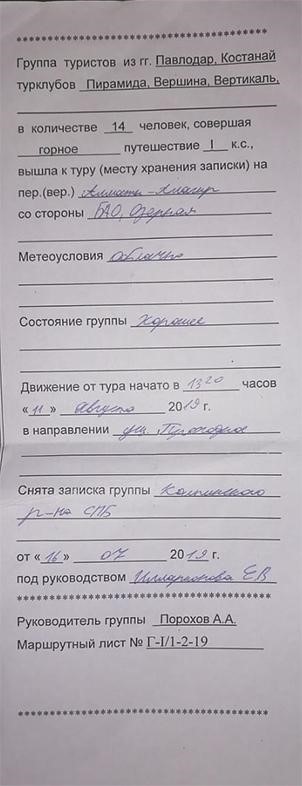 ****************************************
Группа туристов из гг. Павлодар, Костанай
турклубов Пирамида, Вершина, Вертикаль,
в количестве 14 человек, совершая
горное путешествие I к.с.,
вышла к туру (месту хранения записки) на
пер.(вер.) Алматы-Алагир
со стороны БАО, Озерная
Метеоусловия облачно
Состояние группы Хорошее
Движение от тура начато в 13 20 часов
«11» августа 2019 г.
в направлении ущ. Проходное
Снята записка группы Колпинского
р-на СПБ
от «16» 07 2019 г.
под руководством Илларионова ЕВ
****************************************
Руководитель группы Порохов А.А.
Маршрутный лист № Г-I/1-2-19
****************************************